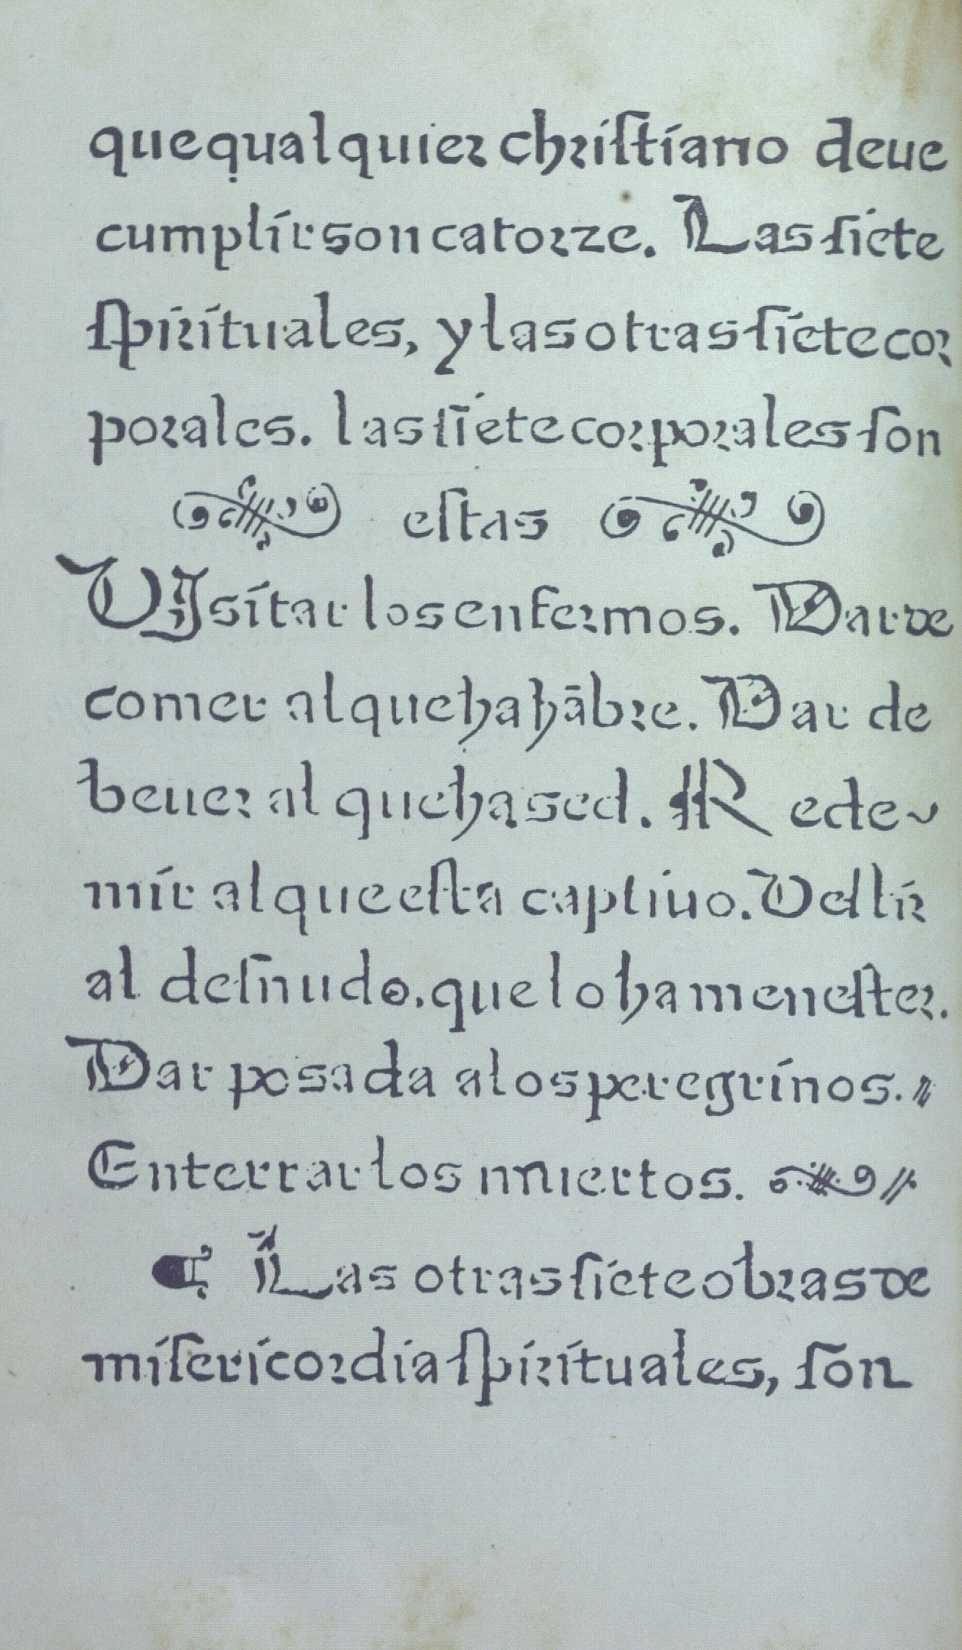 que qualquier chriſtiano deue
cumplir son catorze. Las ſiete
ſpirituales, y las otras ſiete cor
porales. las ſiete corporales ſon
eſtas
VJsitar los enfermos. Dar de
comer al que ha hābre. Dar de
beuer al que ha sed. Rede~
mir al que eſta captiuo. Veſtir
al deſnudo. que lo ha meneſter.
Dar posada a los peregrinos.
Enterrar los muertos.
¶ Las otras ſiete obras de
miſericordia ſpirituales, ſon